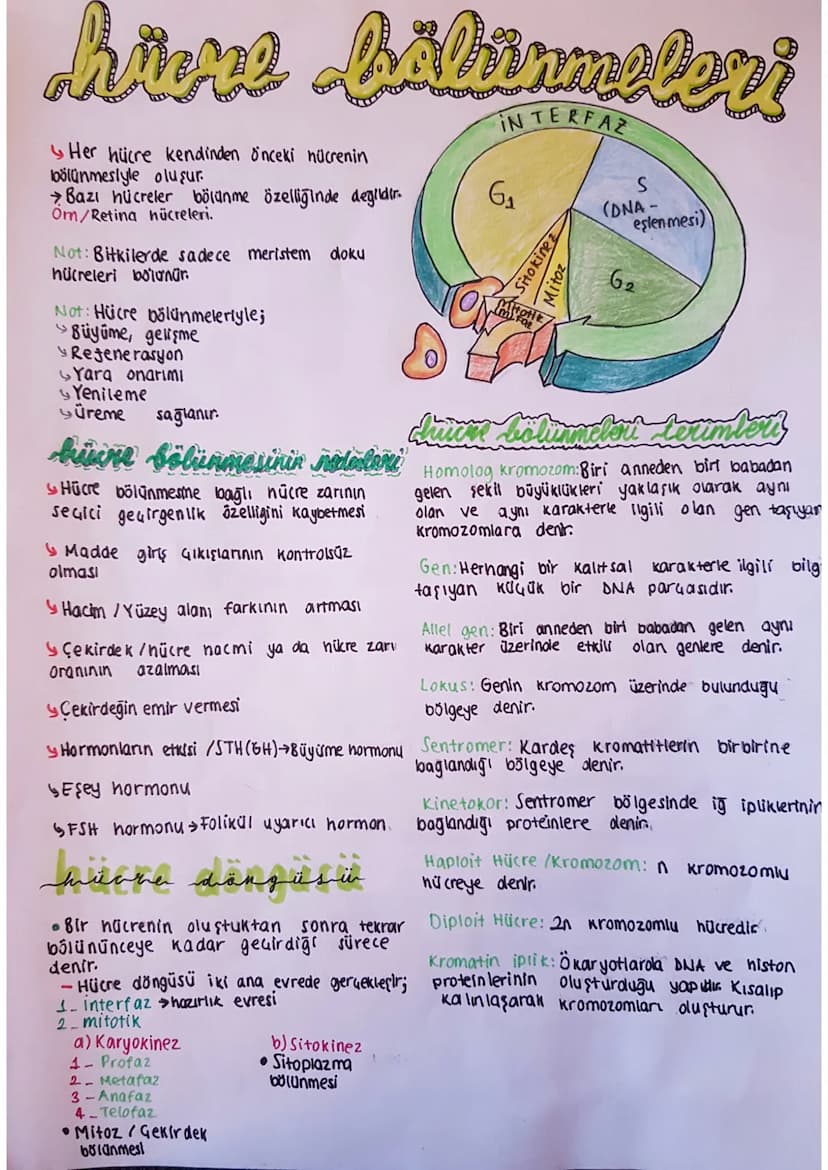 hücre bölünmeleri
↳ Her hücre kendinden önceki hücrenin
bölünmesiyle oluşur.
→ Bazı hücreler bölünme özelliğinde değildir.
Örn/Retina hücreleri.
Not: Bitkilerde sadece meristem doku
hücreleri bölünür.
Not: Hücre bölünmeleriyle;
↳ Büyüme, gelişme
↳ Rejenerasyon
↳ Yara onarımı
↳ Yenileme
↳ üreme sağlanır.
hücre bölünmesinin nedenleri
↳ Hücre bölünmesine bağlı hücre zarının
seçici geçirgenlik özelliğini kaybetmesi
↳ Madde giriş çıkışlarının kontrolsüz
olması
↳ Hacim / Yüzey alanı farkının artması
↳ Çekirdek / hücre hacmi ya da hükre zarı
oranının azalması
↳ Çekirdeğin emir vermesi
↳ Hormonların etkisi / STH(GH)→Büyüme hormonu
↳ Eşey hormonu
↳ FSH hormonu → Folikül uyarıcı hormon.
hücre döngüsü
• Bir hücrenin oluştuktan sonra tekrar
bölününceye kadar geçirdiği sürece
denir.
– Hücre döngüsü iki ana evrede gerçekleşir;
1_ interfaz → hazırlık evresi
2_ mitotik
a) Karyokinez
1 – Profaz
2 – Metafaz
3 – Anafaz
4 – Telofaz
• Mitoz / Çekirdek
bölünmesi
b) Sitokinez
• Sitoplazma
bölünmesi
İNTERFAZ
G1
S
(DNA –
eşlenmesi)
G2
Sitokinez
Mitoz
Mitotik
hücre bölünmeleri terimleri
Homolog kromozom: Biri anneden biri babadan
gelen şekil büyüklükleri yaklaşık olarak aynı
olan ve aynı karakterle ilgili olan gen taşıyan
kromozomlara denir.
Gen: Herhangi bir kalıtsal karakterle ilgili bilg
taşıyan küçük bir DNA parçasıdır.
Allel gen: Biri anneden biri babadan gelen aynı
karakter üzerinde etkili olan genlere denir.
Lokus: Genin kromozom üzerinde bulunduğu
bölgeye denir.
Sentromer: Kardeş kromatitlerin birbirine
bağlandığı bölgeye denir.
Kinetokor: Sentromer bölgesinde iğ ipliklerinin
bağlandığı proteinlere denir.
Haploit Hücre / Kromozom: n kromozomlu
hücreye denir.
Diploit Hücre: 2n kromozomlu hücredir.
Kromatin iplik: Ökaryotlarda DNA ve histon
proteinlerinin oluşturduğu yapıdır. Kısalıp
kalınlaşarak kromozomları oluşturur.